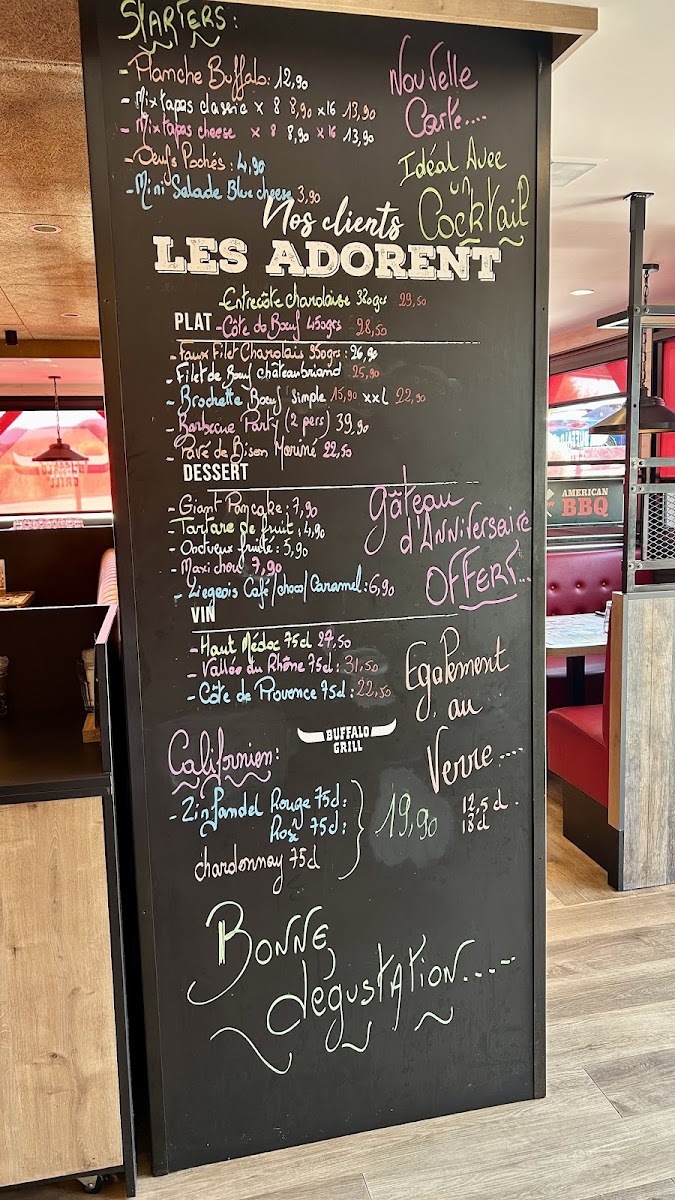 STARTERS:
- Planche Buffalo: 12,90
- Mix tapas classic x 8 8,90 x16 13,90
- Mix tapas cheese x 8 8,90 x 16 13,90
- Oeufs Pochés: 4,90
- Mini Salade Blue cheese 3,90
Nouvelle
Carte....
Idéal Avec
un
Cocktail
Nos clients
LES ADORENT
- Entrecôte charolaise 320grs 29,50
PLAT - Côte de Boeuf 450grs 28,50
- Faux Filet Charolais 350grs: 26,90
- Filet de Boeuf châteaubriand 25,90
- Brochette Boeuf simple 15,90 xxL 22,90
- Barbecue Party (2 pers) 39,90
- Pavé de Bison Mariné 22,50
DESSERT
- Giant Pancake: 7,90
- Tartare de fruit: 4,90
- Onctueux fruité: 5,90
- Maxi chou 7,90
- Liegeois Café/choco/Caramel: 6,90
gâteau
d'Anniversaire
OFFERT...
VIN
- Haut Médoc 75cl 27,50
- Vallée du Rhône 75cl: 31,50
- Côte de Provence 75cl: 22,50
Egalement
au
Verre....
12,5 cl
18cl
BUFFALO
GRILL
Californien:
- Zinfandel Rouge 75cl:
Rosé 75cl:
chardonnay 75cl
19,90
Bonne
degustation....-
AMERICAN
BBQ
BUFFALO
GRILL